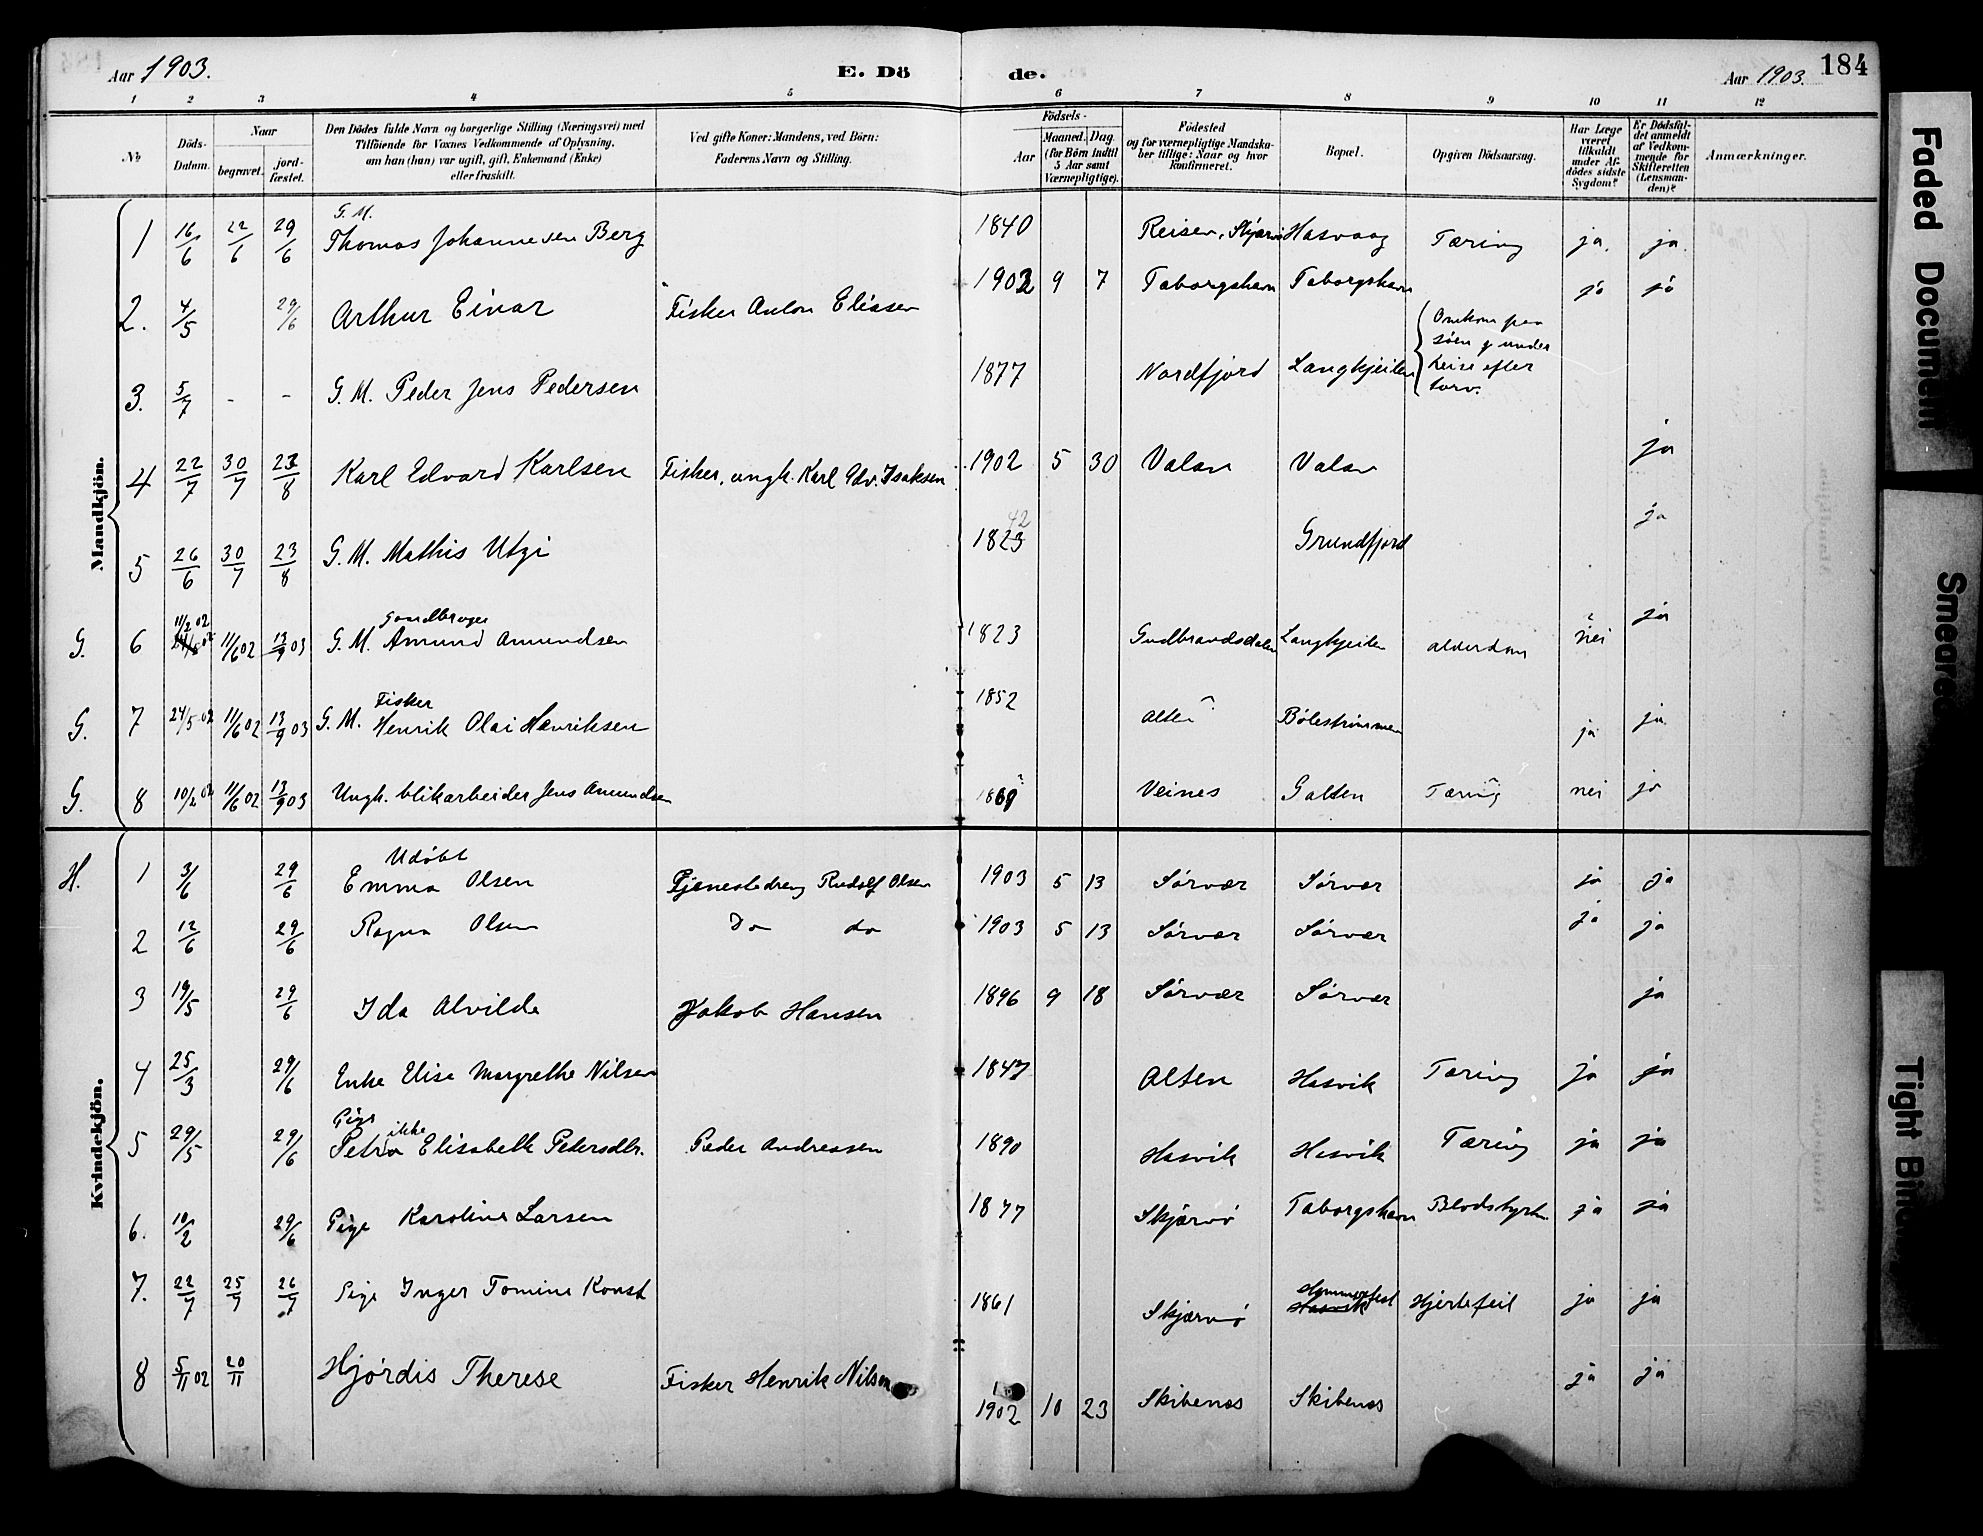 Aar 1903.
E. Dö
de.
Aar 1903.
184
1 2 3 4 5 6 7 8 9 10 11 12
No
Döds-
Datum.
Naar
begravet.
jord-
fæstet.
Den Dödes fulde Navn og borgerlige Stilling (Næringsvei) med
Tilföiende for Voxnes Vedkommende af Oplysning,
om han (hun) var ugift, gift, Enkemand (Enke)
eller fraskilt.
Ved gifte Koner: Mandens, ved Börn:
Faderens Navn og Stilling.
Födsels-
Aar
Maaned. Dag.
(for Börn indtil
5 Aar samt
Værnepligtige).
Födested
og for værnepligtige Mandska-
ber tillige: Naar og hvor
konfirmeret.
Bopæl.
Opgiven Dödsaarsag.
Har Læge
været
tilkaldt
under Af-
dödes sidste
Sygdom?
Er Dödsfal-
det anmeldt
af Vedkom-
mende for
Skifteretten
(Lensman-
den)?
Anmærkninger.
Mandkjön.
G. M.
1 16/6 22/6 29/6 Thomas Johannesen Berg 1840 Reisen, Skjærvø Hasvaag Tæring ja. ja.
2. 4/5 29/6 Arthur Einar Fisker Anton Eliesen 1902 9 7 Taborgshavn Taborgshavn ja ja
3. 5/7 - - G. M. Peder Jens Pedersen 1877 Nordfjord Langkjeilen
Omkom paa
søen under
reise efter
torv.
4 22/7 30/7 23/8 Karl Edvard Karlsen Fisker, ungk. Karl Edv. Isaksen 1902 5 30 Valan Valan ja
42
5 26/6 30/7 23/8 G. M. Mathis Utzi 1823 Grundfjord ja
11/2 02
Gaardbruger
G. 6 11/6 02 13/9 03 G. M. Amund Amundsen 1823 Gudbrandsdalen Langkjeilen alderdom nei ja
Fisker
G. 7 24/5 02 11/6 02 13/9 03 G. M. Henrik Olai Henriksen 1852 Alten Bølestrømmen ja ja
G. 8 10/2 02 11/6 02 13/9 03 Ungk. blikarbeider Jens Amundsen Veines Galten Tæring nei ja
Kvindekjön.
Udøbt
H. 1 3/6 29/6 Emma Olsen Tjenestedreng Rudolf Olsen 1903 5 13 Sørvær Sørvær ja ja
2 12/6 29/6 Ragna Olsen Do do 1903 5 13 Sørvær Sørvær ja ja
3 19/5 29/6 Ida Alvilde Jakob Hansen 1896 9 18 Sørvær Sørvær ja
4 25/3 29/6 Enke Elise Margrethe Nilsen 1847 Alten Hasvik Tæring ja ja
Pige ikke
5 29/5 29/6 Petra Elisabeth Pedersdtr. Peder Andreasen 1890 Hasvik Hasvik Tæring ja ja
6. 10/2 29/6 Pige Karoline Larsen 1877 Skjærvø Taborgshavn Blodstyrtn. ja ja
Hammerfest
7. 22/7 25/7 26/7 Pige Inger Tomine Konst 1861 Skjærvø Hasvik Hjertefeil ja ja
8 5/11 02 20/11 Hjørdis Therese Fisker Henrik Nilsen 1902 10 23 Skibenes Skibenes ja ja
Faded Document
Smeared
Tight Bin